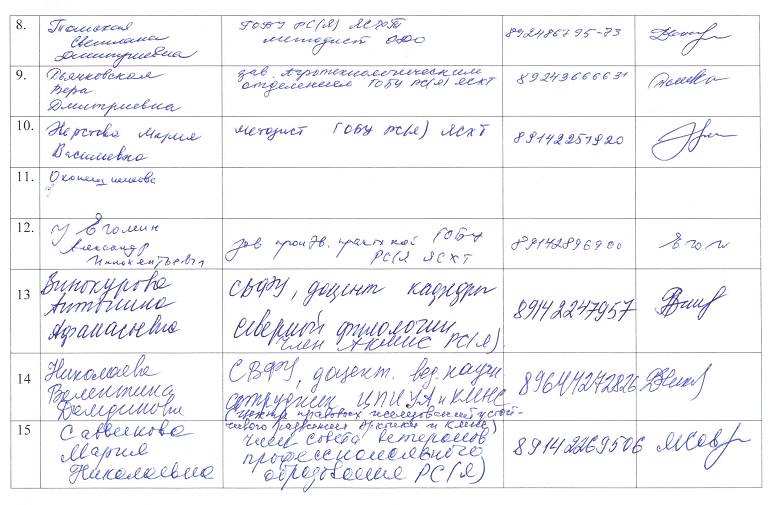 8.
Томская
Светлана
Дмитриевна
ГОБУ РС(Я) ЯСХТ
методист ОДО
89248679573
9.
Дьячковская
Вера
Дмитриевна
зав. Агротехнологическим
отделением ГОБУ РС(Я) ЯСХТ
89243666631
10.
Мария
Васильевна
методист ГОБУ РС(Я) ЯСХТ
89142251920
11.
12.
Еголин
Александр
Иннокентьевич
зав произв. практикой ГОБУ
РС(Я ЯСХТ
89142896900
13
Винокурова
Антонина
Афанасьевна
СВФУ, доцент кафедры
северной филологии
член АКМНС РС(Я)
89142247957
14
Николаева
Валентина
СВФУ, доцент. вед. научн.
сотрудник и КМНС
(центр правовых исследований устой-
чивого развития Арктики и КМНС)
89644272826
15
Саввинова
Мария
Николаевна
член совета ветеранов
профессионального
образования РС(Я)
89142269506